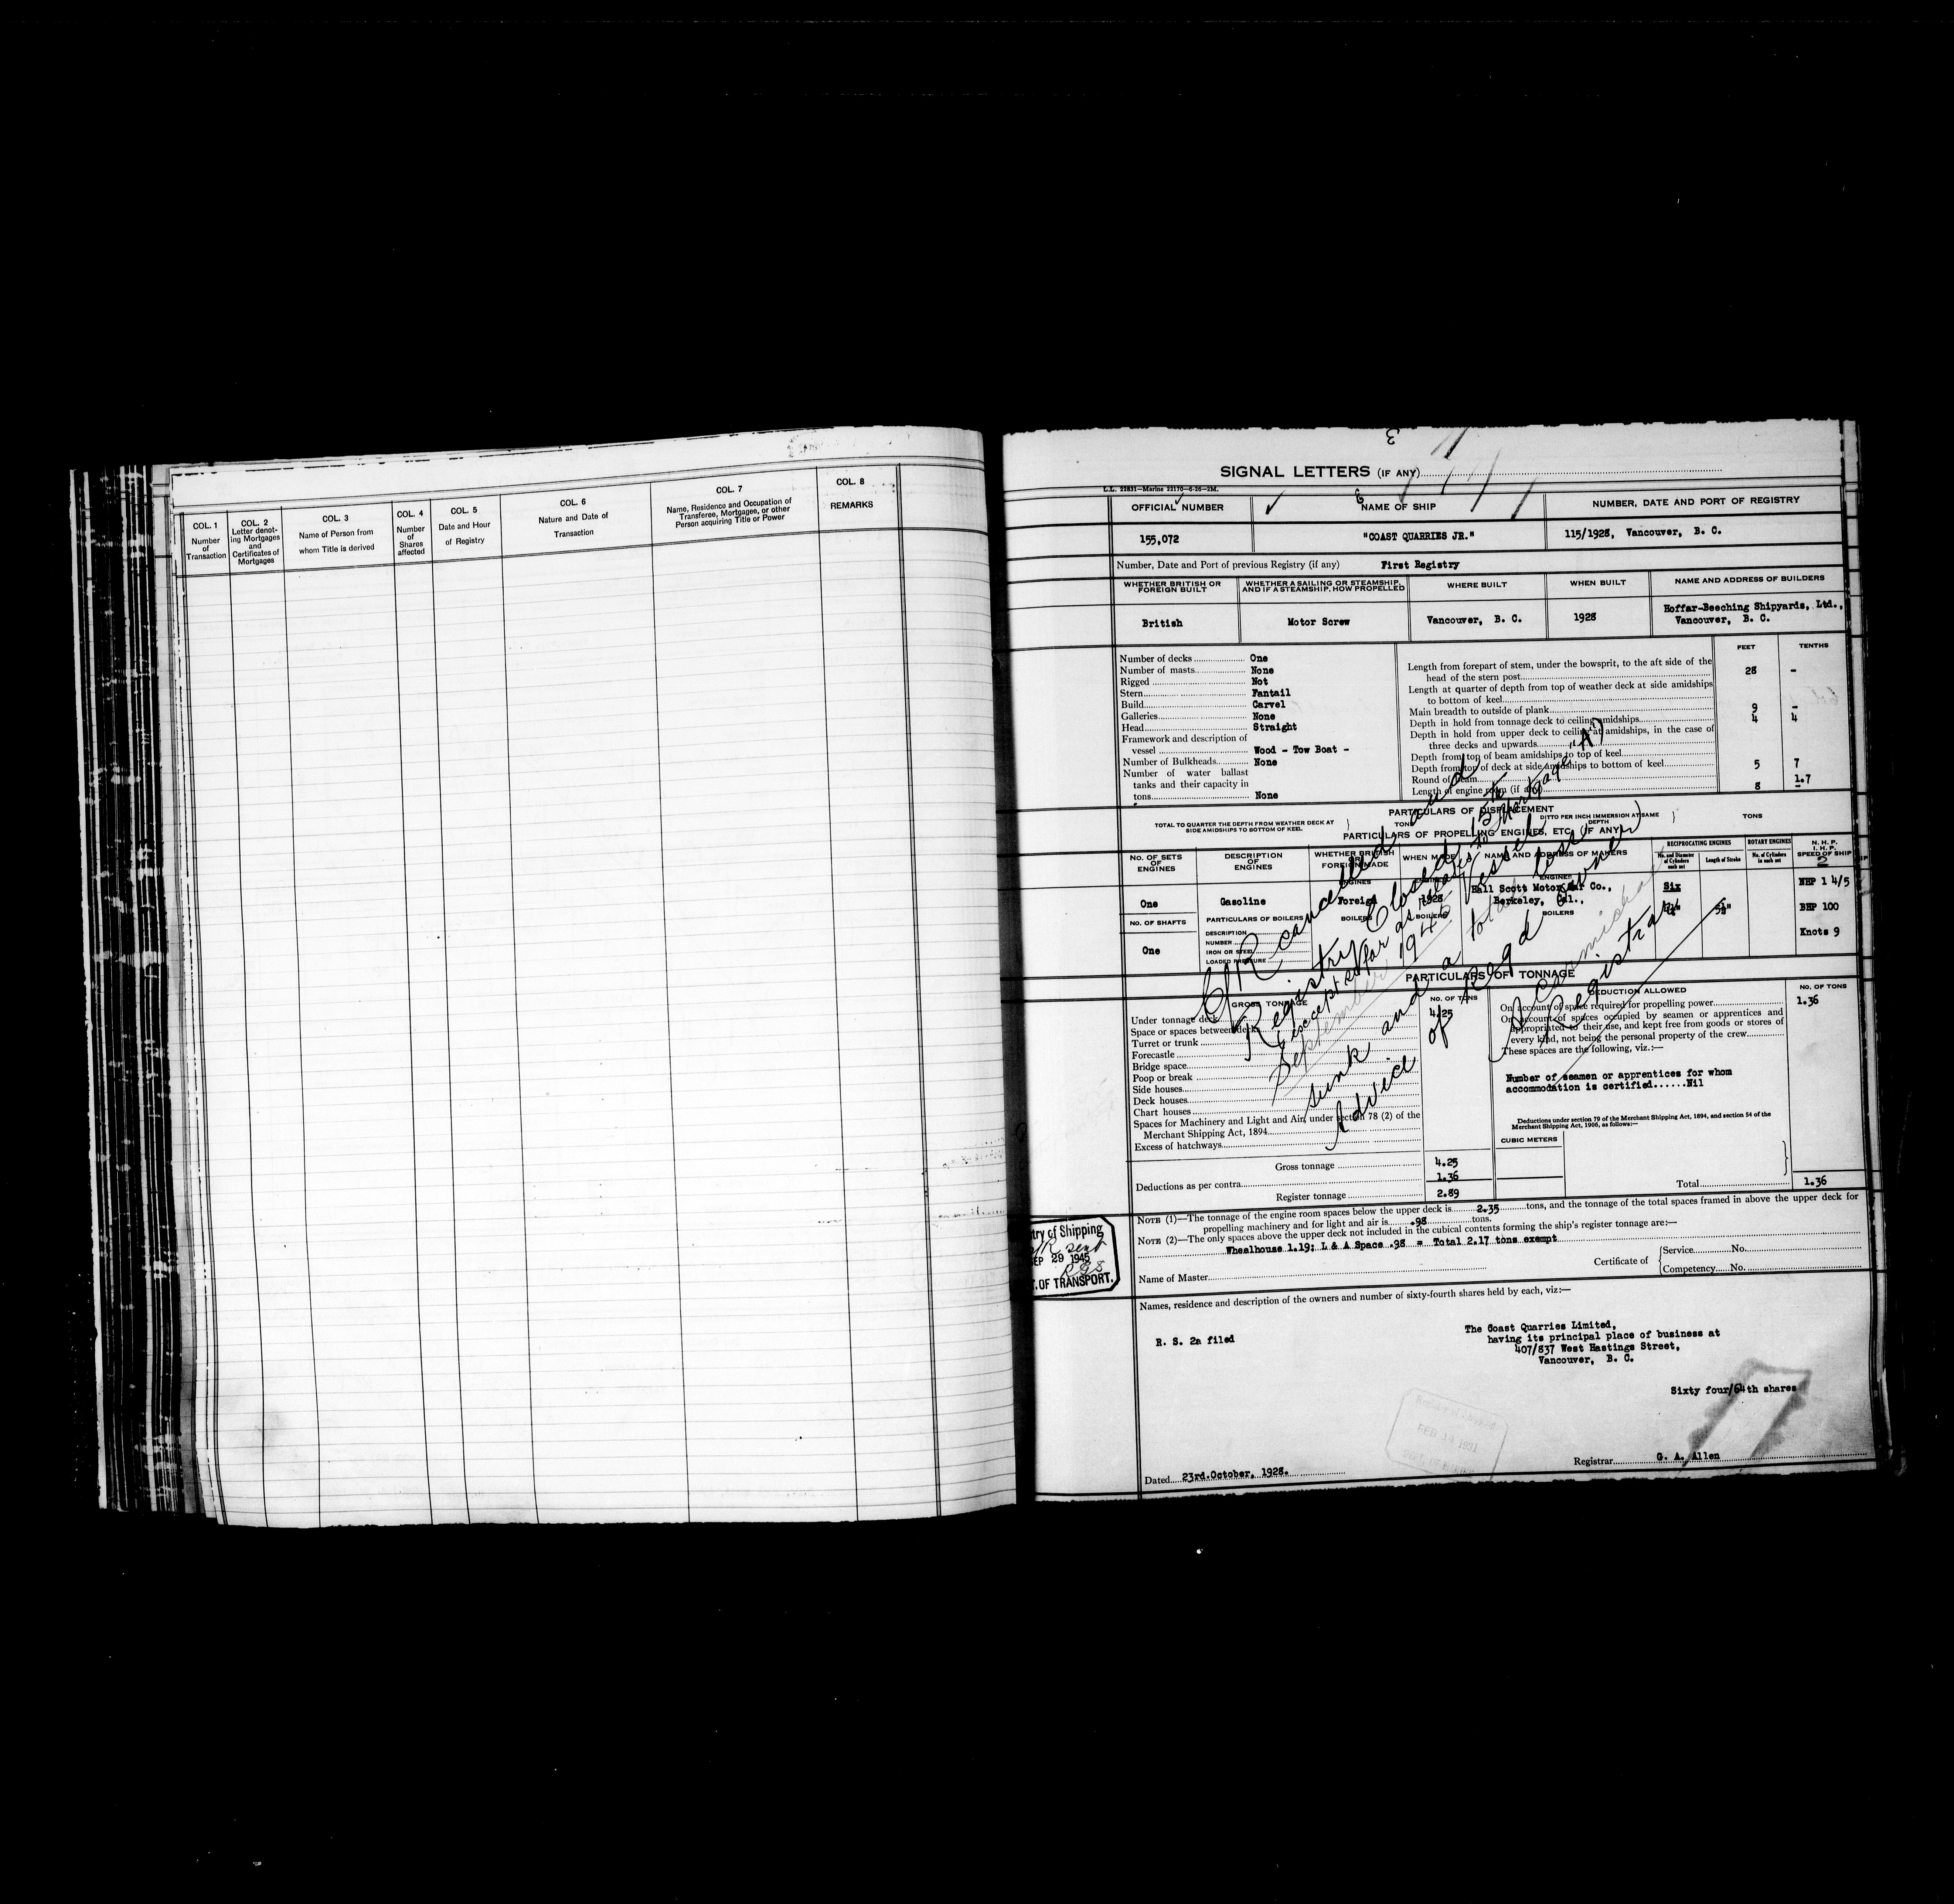 COL. 1
Number
of
Transaction
COL. 2
Letter denot-
ing Mortgages
and
Certificates of
Mortgages
COL. 3
Name of Person from
whom Title is derived
COL. 4
Number
of
Shares
affected
COL. 5
Date and Hour
of Registry
COL. 6
Nature and Date of
Transaction
COL. 7
Name, Residence and Occupation of
Transferee, Mortgagee, or other
Person acquiring Title or Power
COL. 8
REMARKS
SIGNAL LETTERS (IF ANY)
L.L. 22831—Marine 22170—6-26—2M.
OFFICIAL NUMBER
NAME OF SHIP
NUMBER, DATE AND PORT OF REGISTRY
155,072
"COAST QUARRIES JR."
115/1928, Vancouver, B. C.
Number, Date and Port of previous Registry (if any) First Registry
WHETHER BRITISH OR FOREIGN BUILT
WHETHER A SAILING OR STEAMSHIP, AND IF A STEAMSHIP, HOW PROPELLED
WHERE BUILT
WHEN BUILT
NAME AND ADDRESS OF BUILDERS
British
Motor Screw
Vancouver, B. C.
1928
Hoffar-Beeching Shipyards, Ltd.,
Vancouver, B. C.
FEET TENTHS
Number of decks One
Number of masts None
Rigged Not
Stern Fantail
Build Carvel
Galleries None
Head Straight
Framework and description of
vessel Wood - Tow Boat -
Number of Bulkheads None
Number of water ballast
tanks and their capacity in
tons None
Length from forepart of stem, under the bowsprit, to the aft side of the
head of the stern post 28 -
Length at quarter of depth from top of weather deck at side amidships
to bottom of keel
Main breadth to outside of plank 9 -
Depth in hold from tonnage deck to ceiling amidships 4 4
Depth in hold from upper deck to ceiling at amidships, in the case of
three decks and upwards
Depth from top of beam amidships to top of keel
Depth from top of deck at side amidships to bottom of keel 5 7
Round of beam 1.7
Length of engine room (if any) 8 -
PARTICULARS OF DISPLACEMENT
TOTAL TO QUARTER THE DEPTH FROM WEATHER DECK AT
SIDE AMIDSHIPS TO BOTTOM OF KEEL
TONS
DITTO PER INCH IMMERSION AT SAME
DEPTH
TONS
PARTICULARS OF PROPELLING ENGINES, ETC. (IF ANY)
No. OF SETS OF ENGINES
DESCRIPTION OF ENGINES
WHETHER BRITISH OR FOREIGN MADE
WHEN MADE
NAME AND ADDRESS OF MAKERS
RECIPROCATING ENGINES
No. and Diameter of Cylinders in each set
Length of Stroke
ROTARY ENGINES
No. of Cylinders in each set
N. H. P.
I. H. P.
SPEED OF SHIP
2
One
Gasoline
ENGINES
Foreign
1928
ENGINES
Hall Scott Motor Car Co.,
Berkeley, Cal.,
Six
NHP 1 4/5
BHP 100
Knots 9
NO. OF SHAFTS
One
PARTICULARS OF BOILERS
DESCRIPTION
NUMBER
IRON OR STEEL
LOADED PRESSURE
BOILERS
BOILERS
BOILERS
C/R cancelled and
Registry Closed 15th
(except so far as relates to Mortgage "A")
September 1945 Vessel
sunk and a total loss.
Advice of Regd Owner
Registrar
PARTICULARS OF TONNAGE
GROSS TONNAGE
NO. OF TONS
DEDUCTION ALLOWED
NO. OF TONS
Under tonnage deck 4.25
Space or spaces between deck
Turret or trunk
Forecastle
Bridge space
Poop or break
Side houses
Deck houses
Chart houses
Spaces for Machinery and Light and Air, under section 78 (2) of the
Merchant Shipping Act, 1894
Excess of hatchways
Gross tonnage 4.25
Deductions as per contra 1.36
Register tonnage 2.89
On account of space required for propelling power 1.36
On account of spaces occupied by seamen or apprentices and
appropriated to their use, and kept free from goods or stores of
every kind, not being the personal property of the crew
These spaces are the following, viz.:—
Number of seamen or apprentices for whom
accommodation is certified......Nil
Deductions under section 79 of the Merchant Shipping Act, 1894, and section 54 of the
Merchant Shipping Act, 1906, as follows:—
CUBIC METERS
Total 1.36
NOTE (1)—The tonnage of the engine room spaces below the upper deck is 2.35 tons, and the tonnage of the total spaces framed in above the upper deck for
propelling machinery and for light and air is .98 tons.
NOTE (2)—The only spaces above the upper deck not included in the cubical contents forming the ship's register tonnage are:—
Wheelhouse 1.19; L & A Space .98 = Total 2.17 tons exempt
Name of Master
Certificate of
Service No.
Competency No.
try of Shipping
sent
SEP 29 1945
T. OF TRANSPORT.
Names, residence and description of the owners and number of sixty-fourth shares held by each, viz:—
R. S. 2a filed
The Coast Quarries Limited,
having its principal place of business at
407/837 West Hastings Street,
Vancouver, B. C.
Sixty four/64th shares
FEB 1931
Dated 23rd.October, 1928.
Registrar G. A. Allen